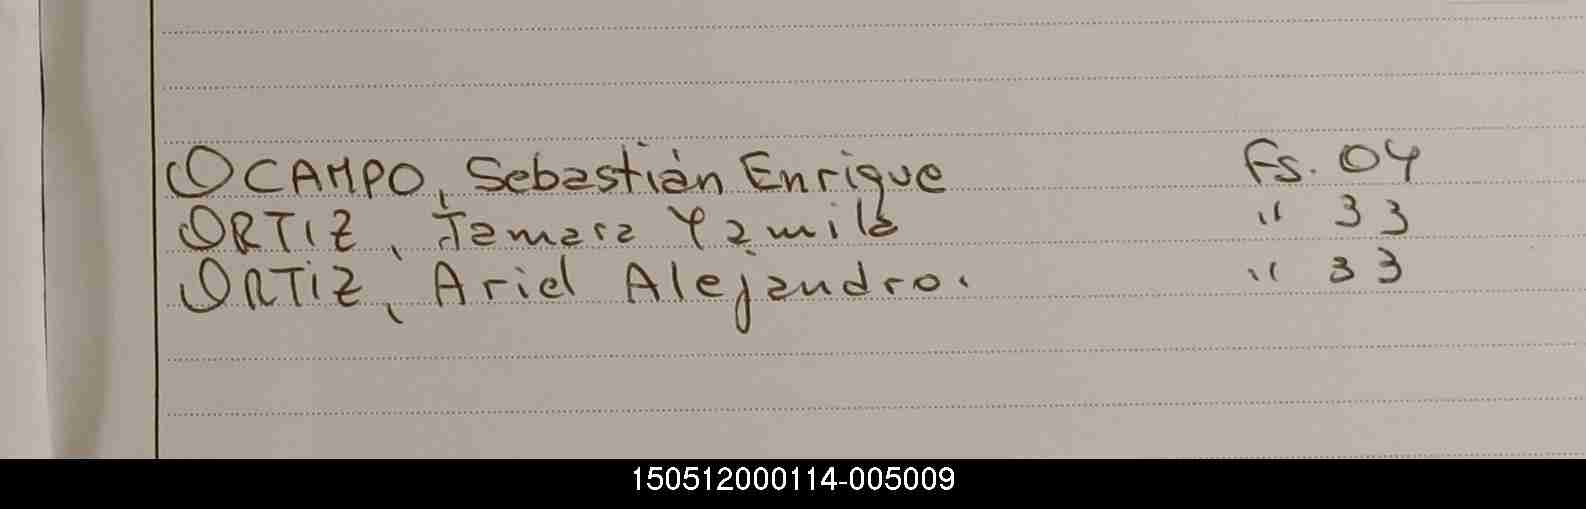 OCAMPO, Sebastián Enrique Fs. 04
ORTIZ, Tamara Yamila " 33
ORTIZ, Ariel Alejandro. " 33
150512000114-005009